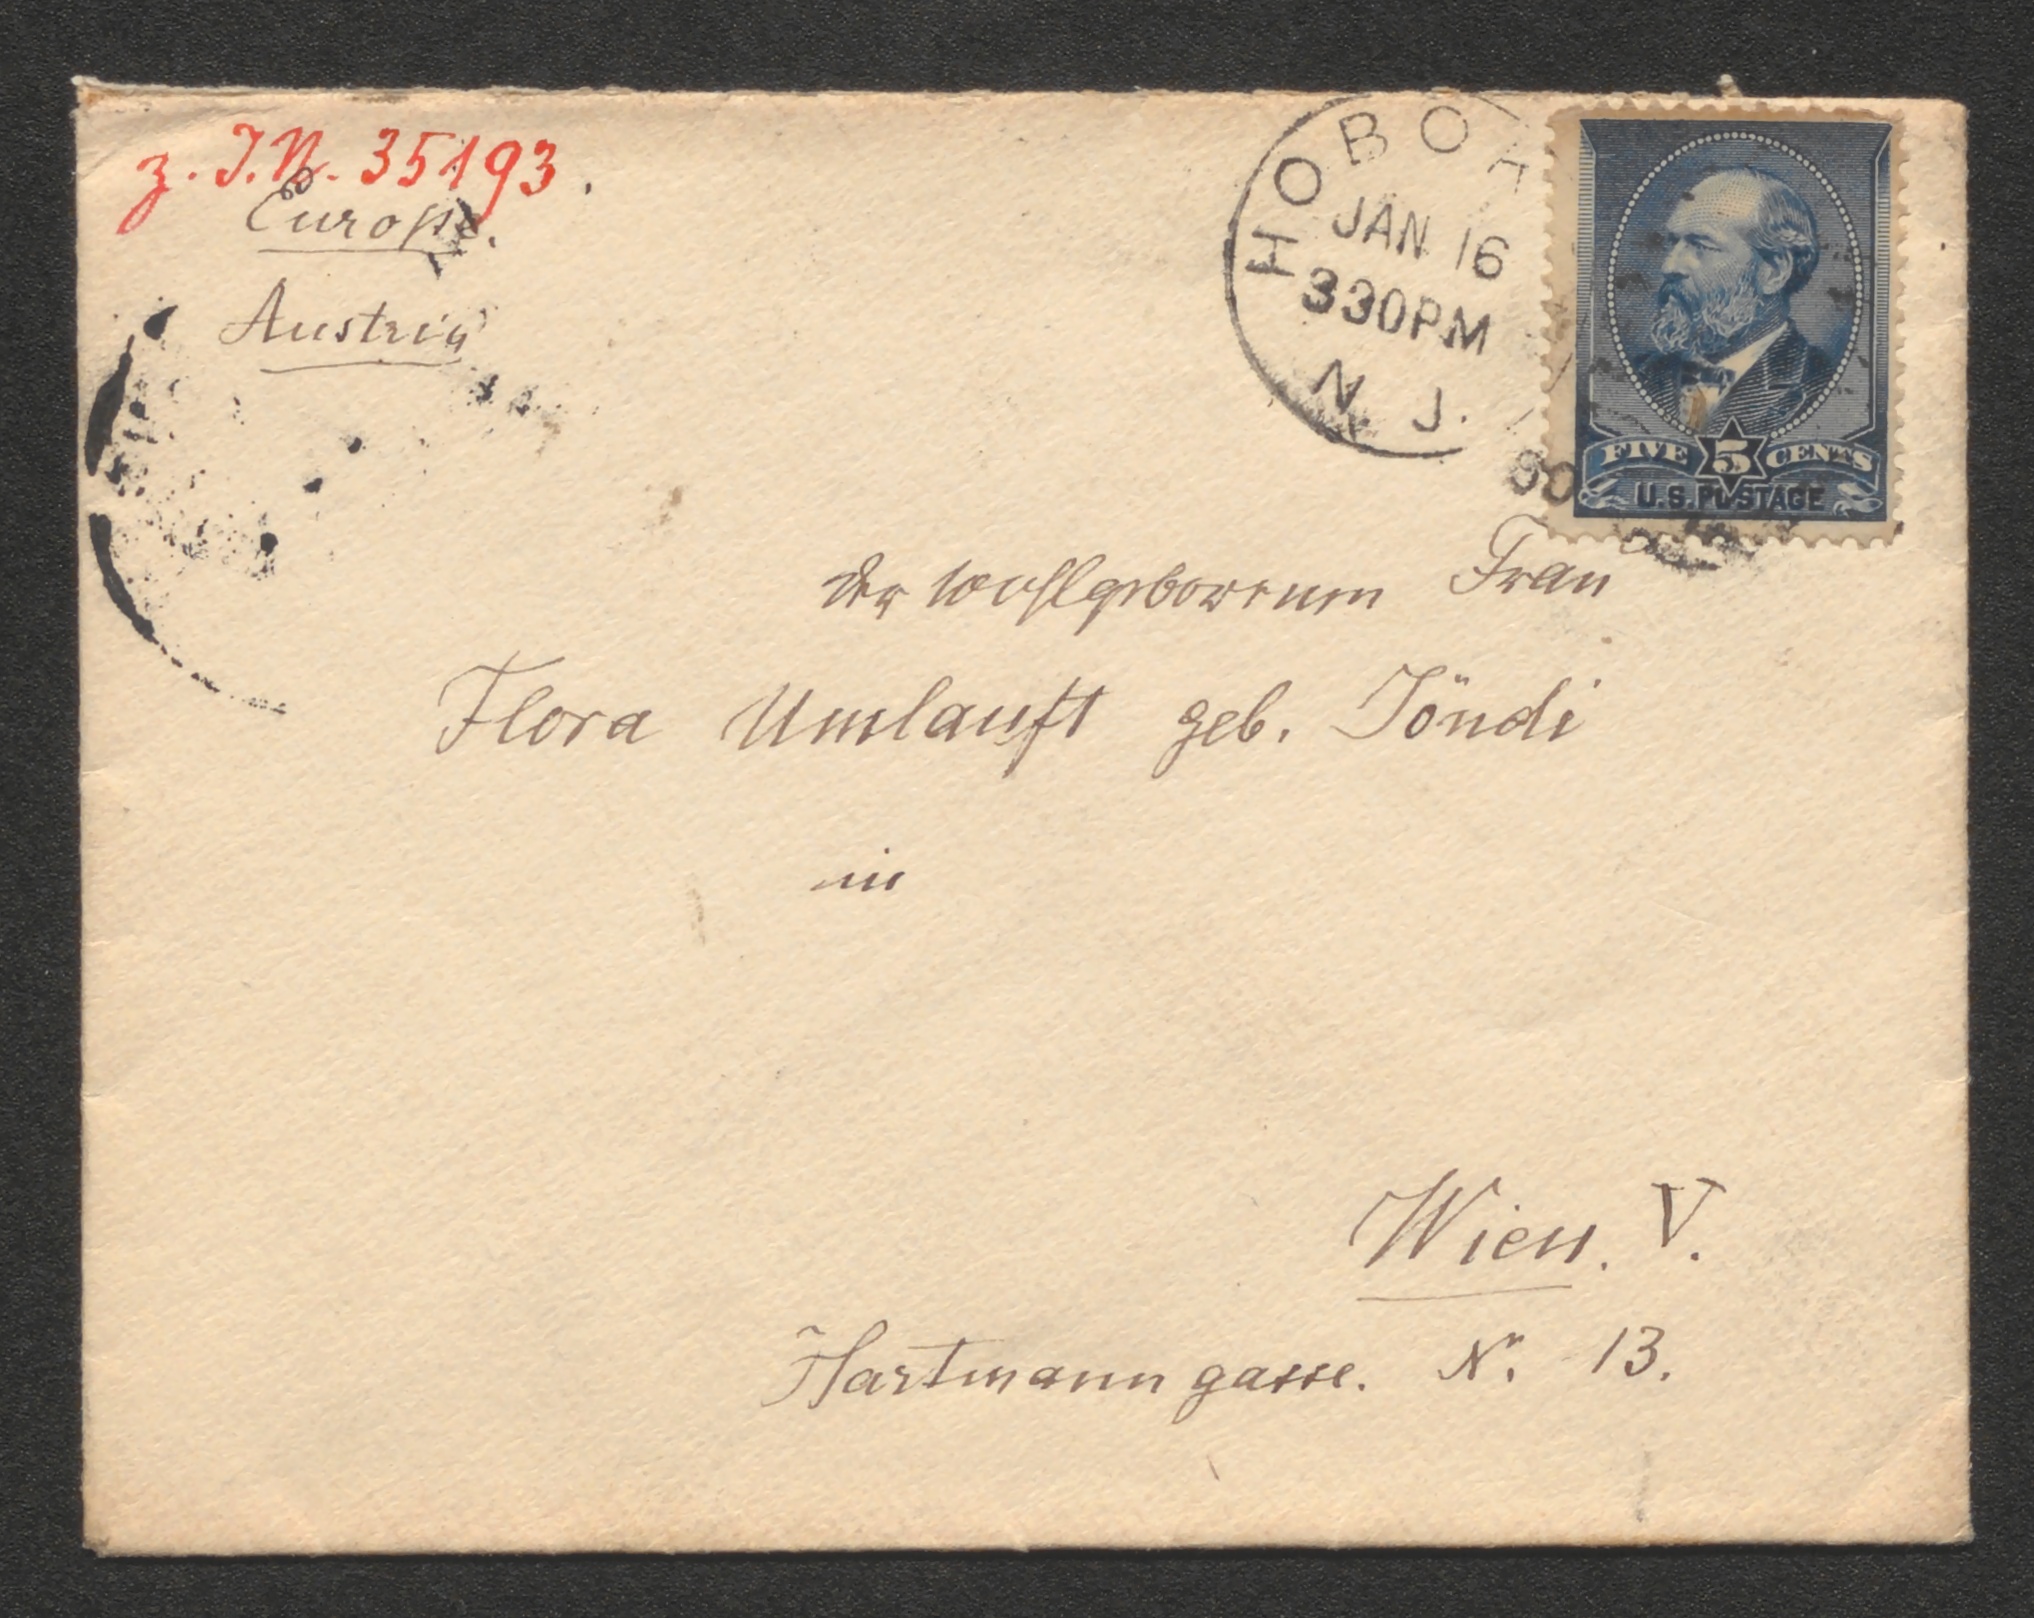 z. I.N. 35193.
Europe.
Austria
HOBOK
JAN 16
330PM
N. J.
90
FIVE 5 CENTS
U.S. POSTAGE
Der wohlgeborenen Frau
Flora Umlauft geb. Jöndi
in
Wien. V.
Hartmanngasse. Nr. 13.